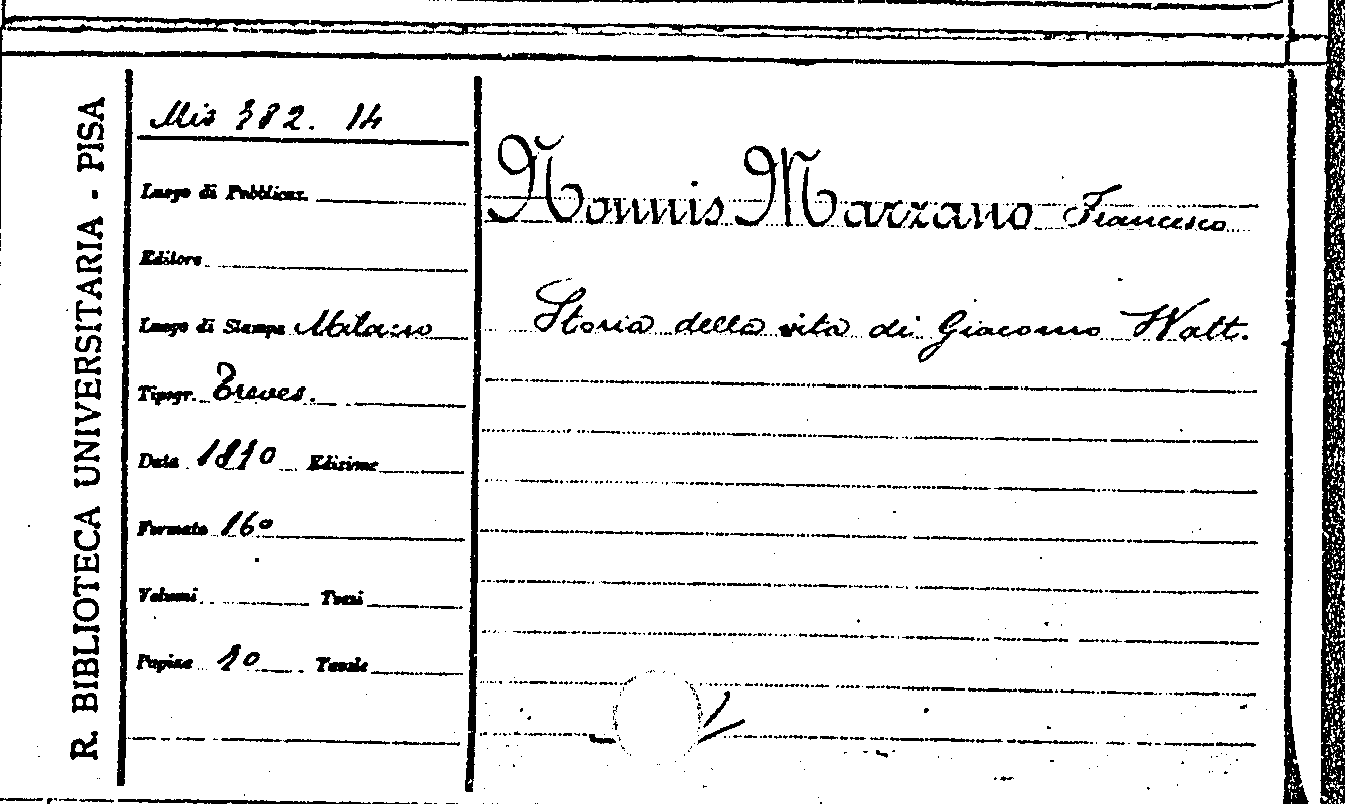 R. BIBLIOTECA UNIVERSITARIA - PISA
Mis 382. 14
Luogo di Pubblicaz.
Editore
Luogo di Stampa Milano
Tipogr. Treves.
Data Edizione
Formato 16º
Volumi Tomi
Pagine Tavole
Nonnis Marzano Francesco
Storia della vita di Giacomo Watt.